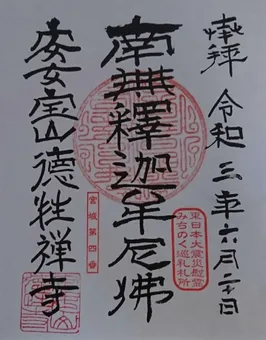 捧拜 令和三年六月二十日
南無釋迦牟尼佛
東日本大震災慰霊
みちのく巡礼札所
宮城第四番
安宝山德性禅寺